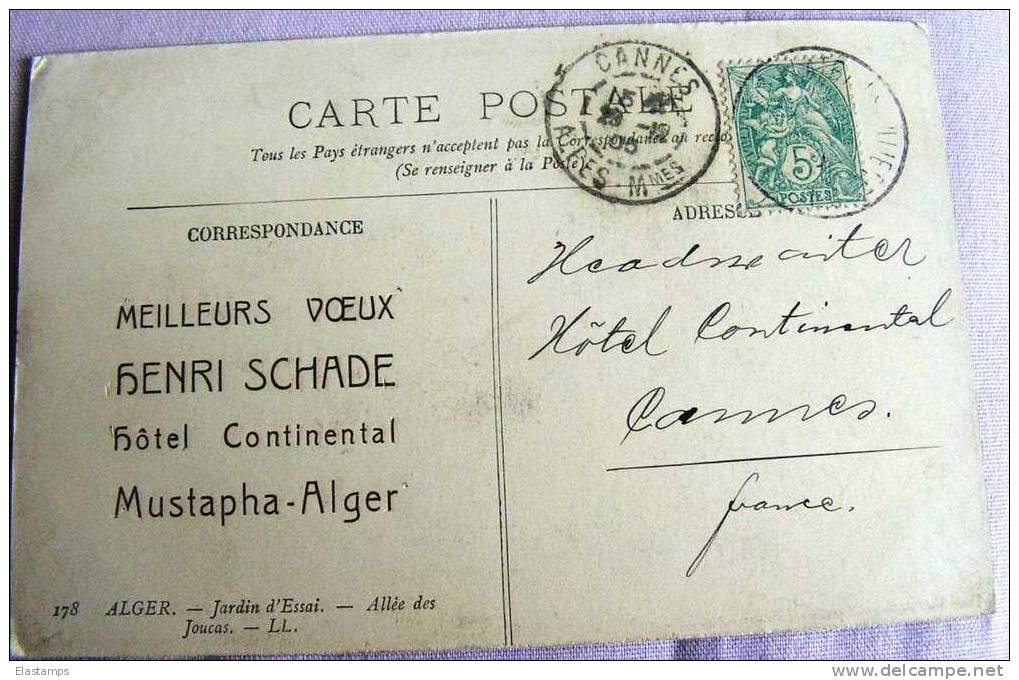 CARTE POSTALE
Tous les Pays étrangers n'acceptent pas la Correspondance au recto
(Se renseigner à la Poste)
CANNES
ALPES-Mmes
5
POSTES
CORRESPONDANCE
ADRESSE
MEILLEURS VŒUX
HENRI SCHADE
hôtel Continental
Mustapha-Alger
Headwaiter
Hôtel Continental
Cannes.
france.
178 ALGER. — Jardin d'Essai. — Allée des
Joucas. — LL.
Elastamps
delcampe.net